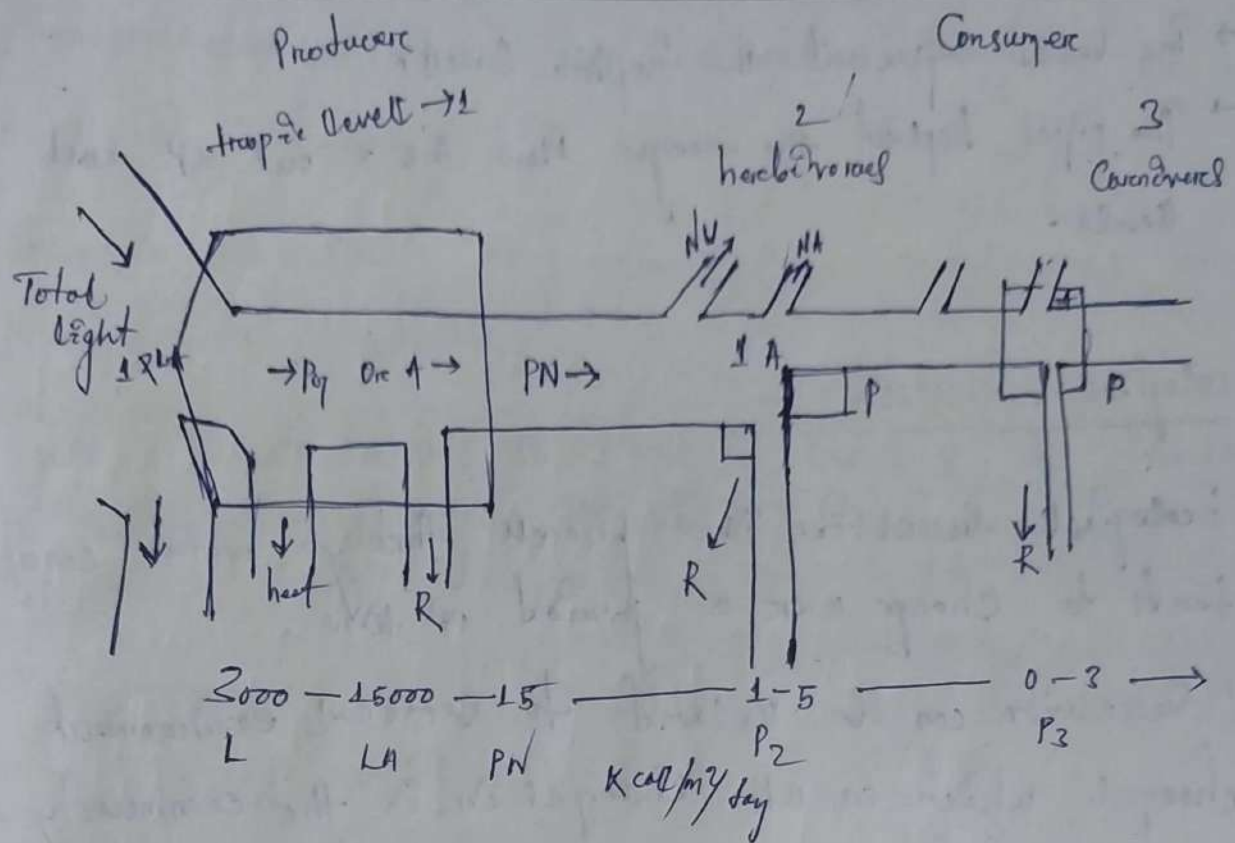 Producere
Consumere
troopic levell → 1
2
3
herebivoraes
Carnivores
NU
NA
Total
light
→ Pg Ore A →
PN →
1 A
P
P
heat
R
R
R
3000 — 15000 — 15 — 1-5 — 0-3 →
L
LA
PN
P2
P3
Kcal/m2/day